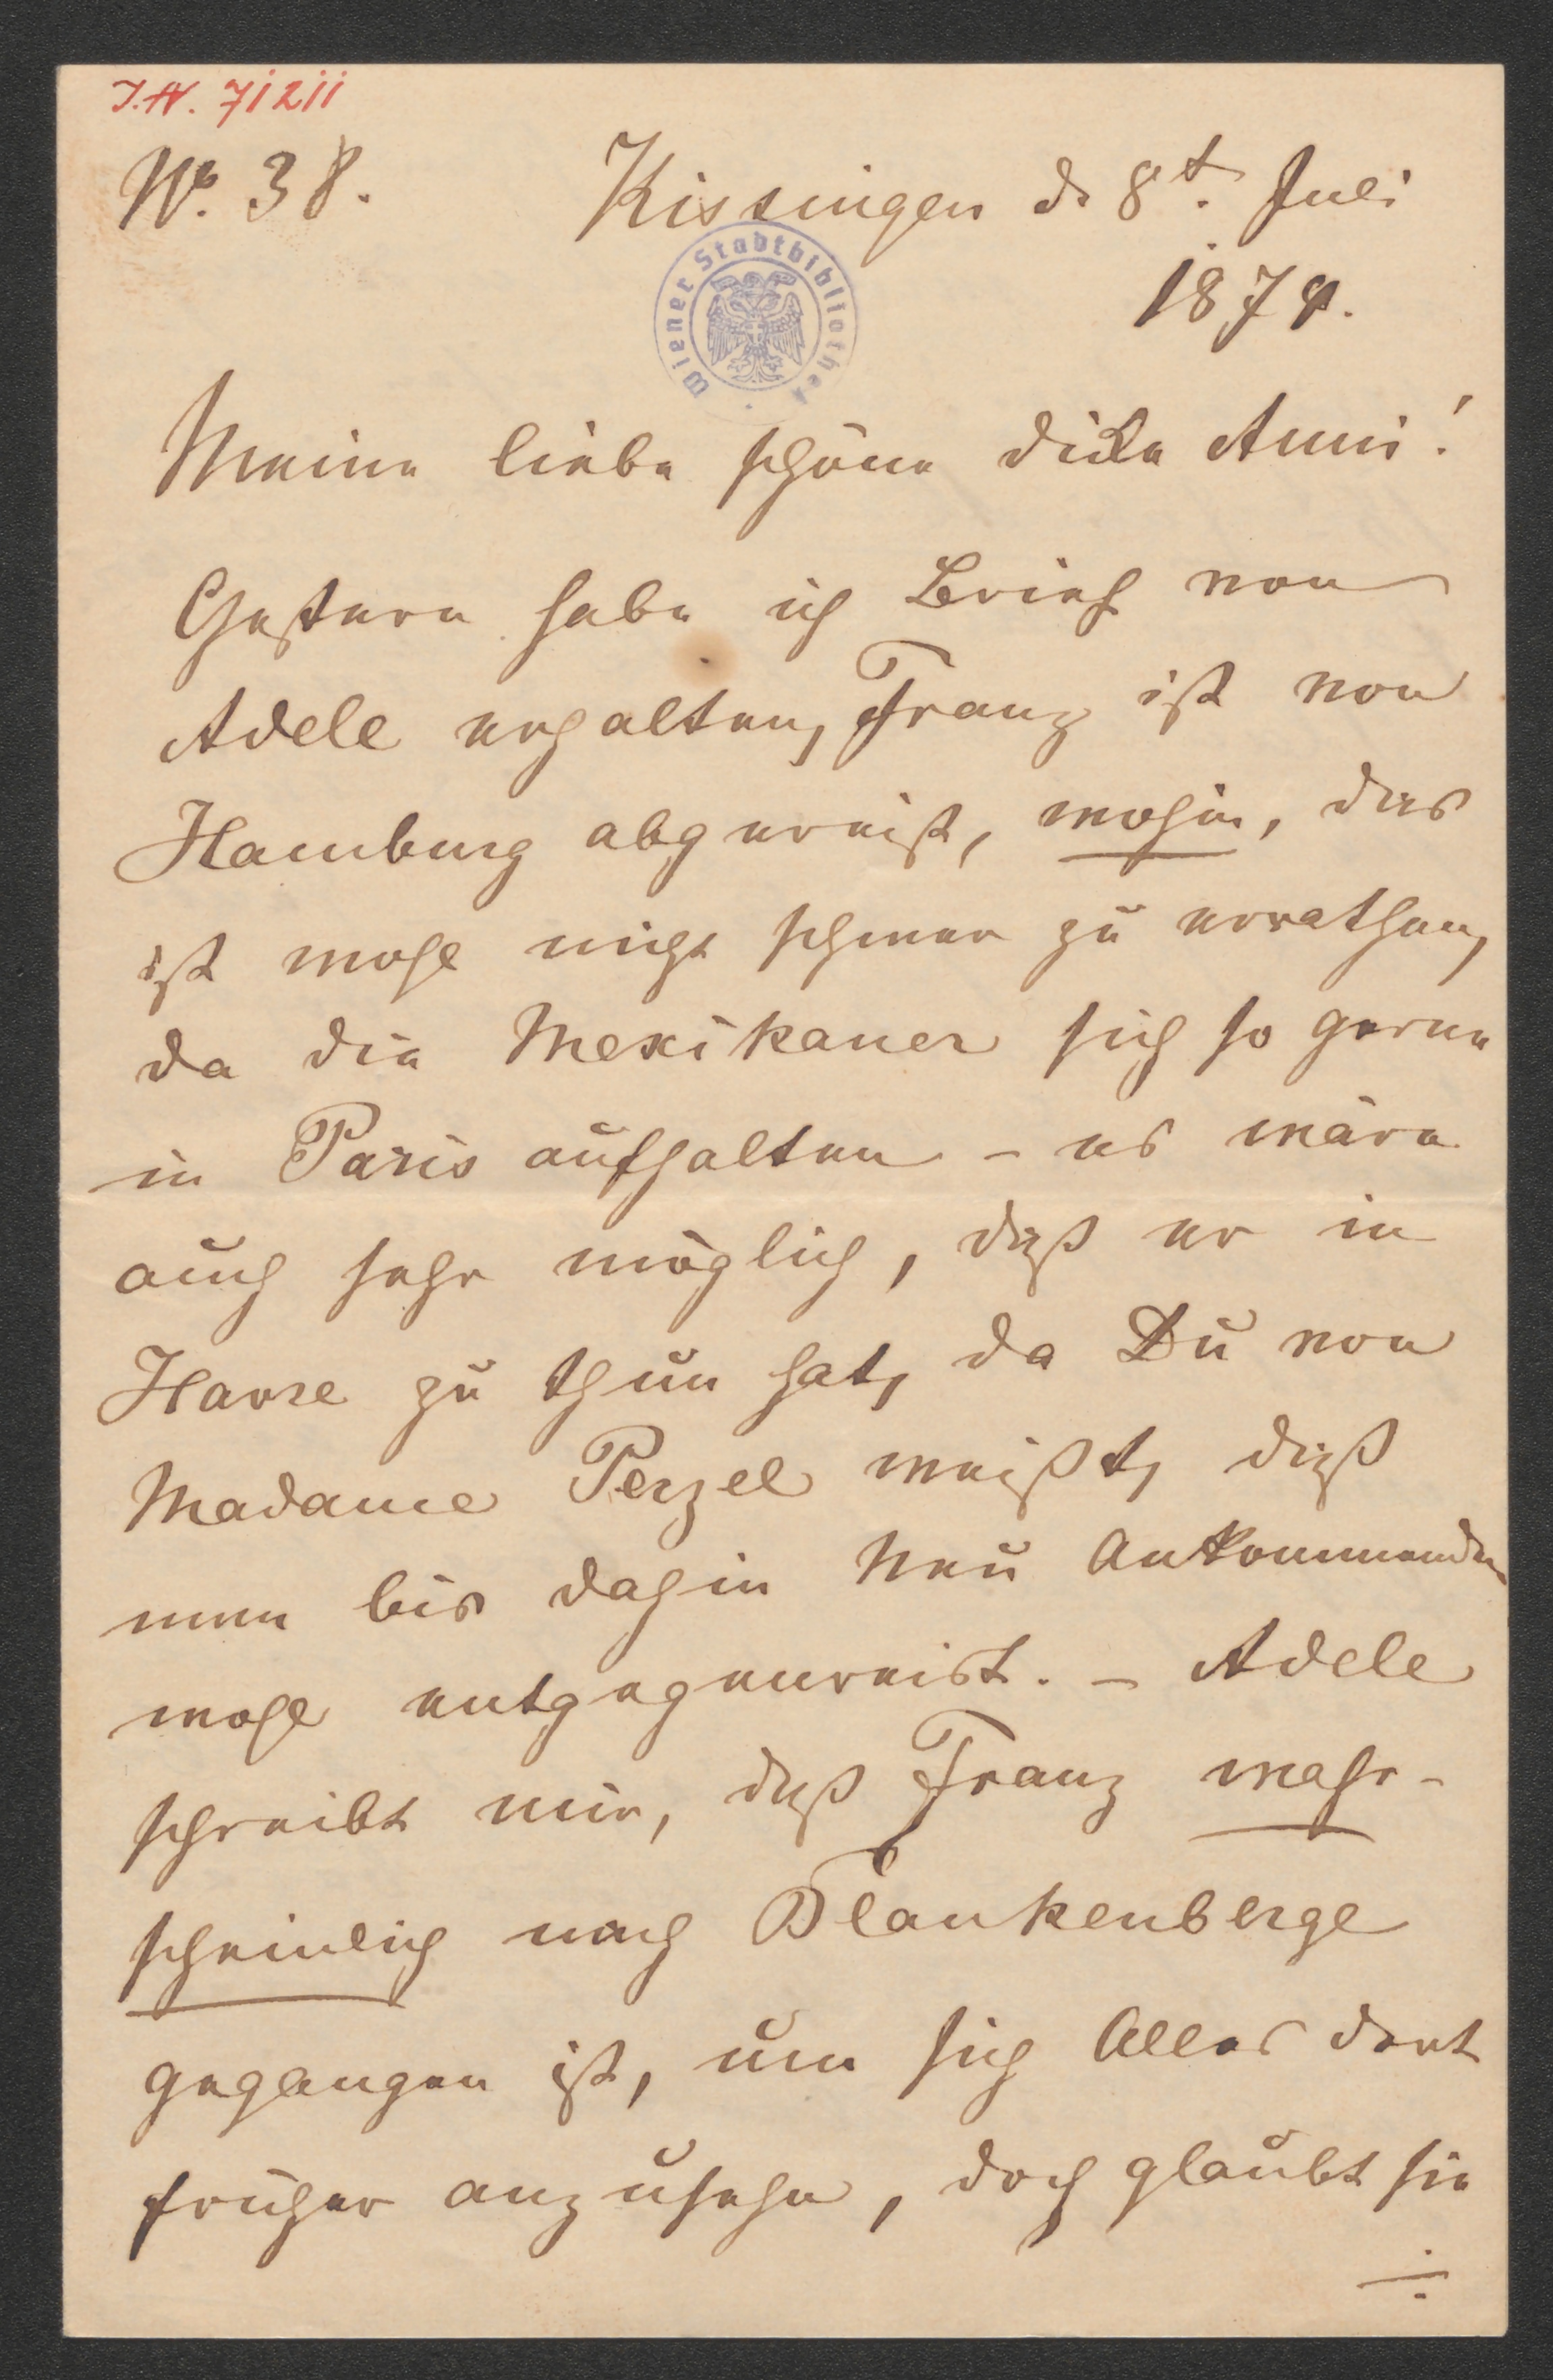 J.N. 71211
No. 38.
Kissingen d. 8t. Juli
1878.
Wiener Stadtbibliothek
Meine liebe schöne dicke Anni!
Gestern habe ich Brief von
Adele erhalten, Franz ist von
Hamburg abgereist, wohin, das
ist wohl nicht schwer zu errathen,
da die Mexikaner sich so gerne
in Paris aufhalten – es wäre
auch sehr möglich, daß er in
Havre zu thun hat, da Du von
Madame Perzel weißt, daß
man bis dahin Neu Ankommenden
wohl entgegenreist. – Adele
schreibt mir, daß Franz wahr-
scheinlich nach Blankenberge
gegangen ist, um sich Alles dort
früher anzusehn, doch glaubt sie